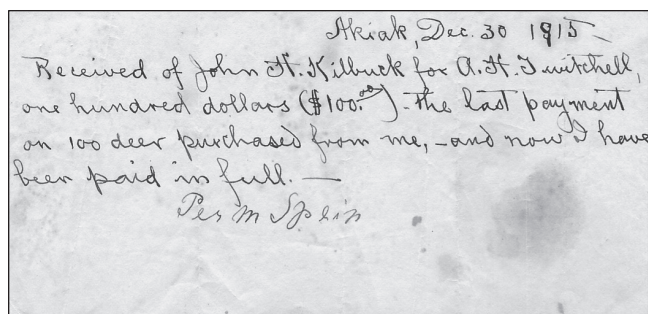 Akiak, Dec. 30 1915
Received of John H. Kilbuck for A.H. Twitchell,
one hundred dollars ($100.00) - the last payment
on 100 deer purchased from me, - and now I have
been paid in full. —
Per M Spein